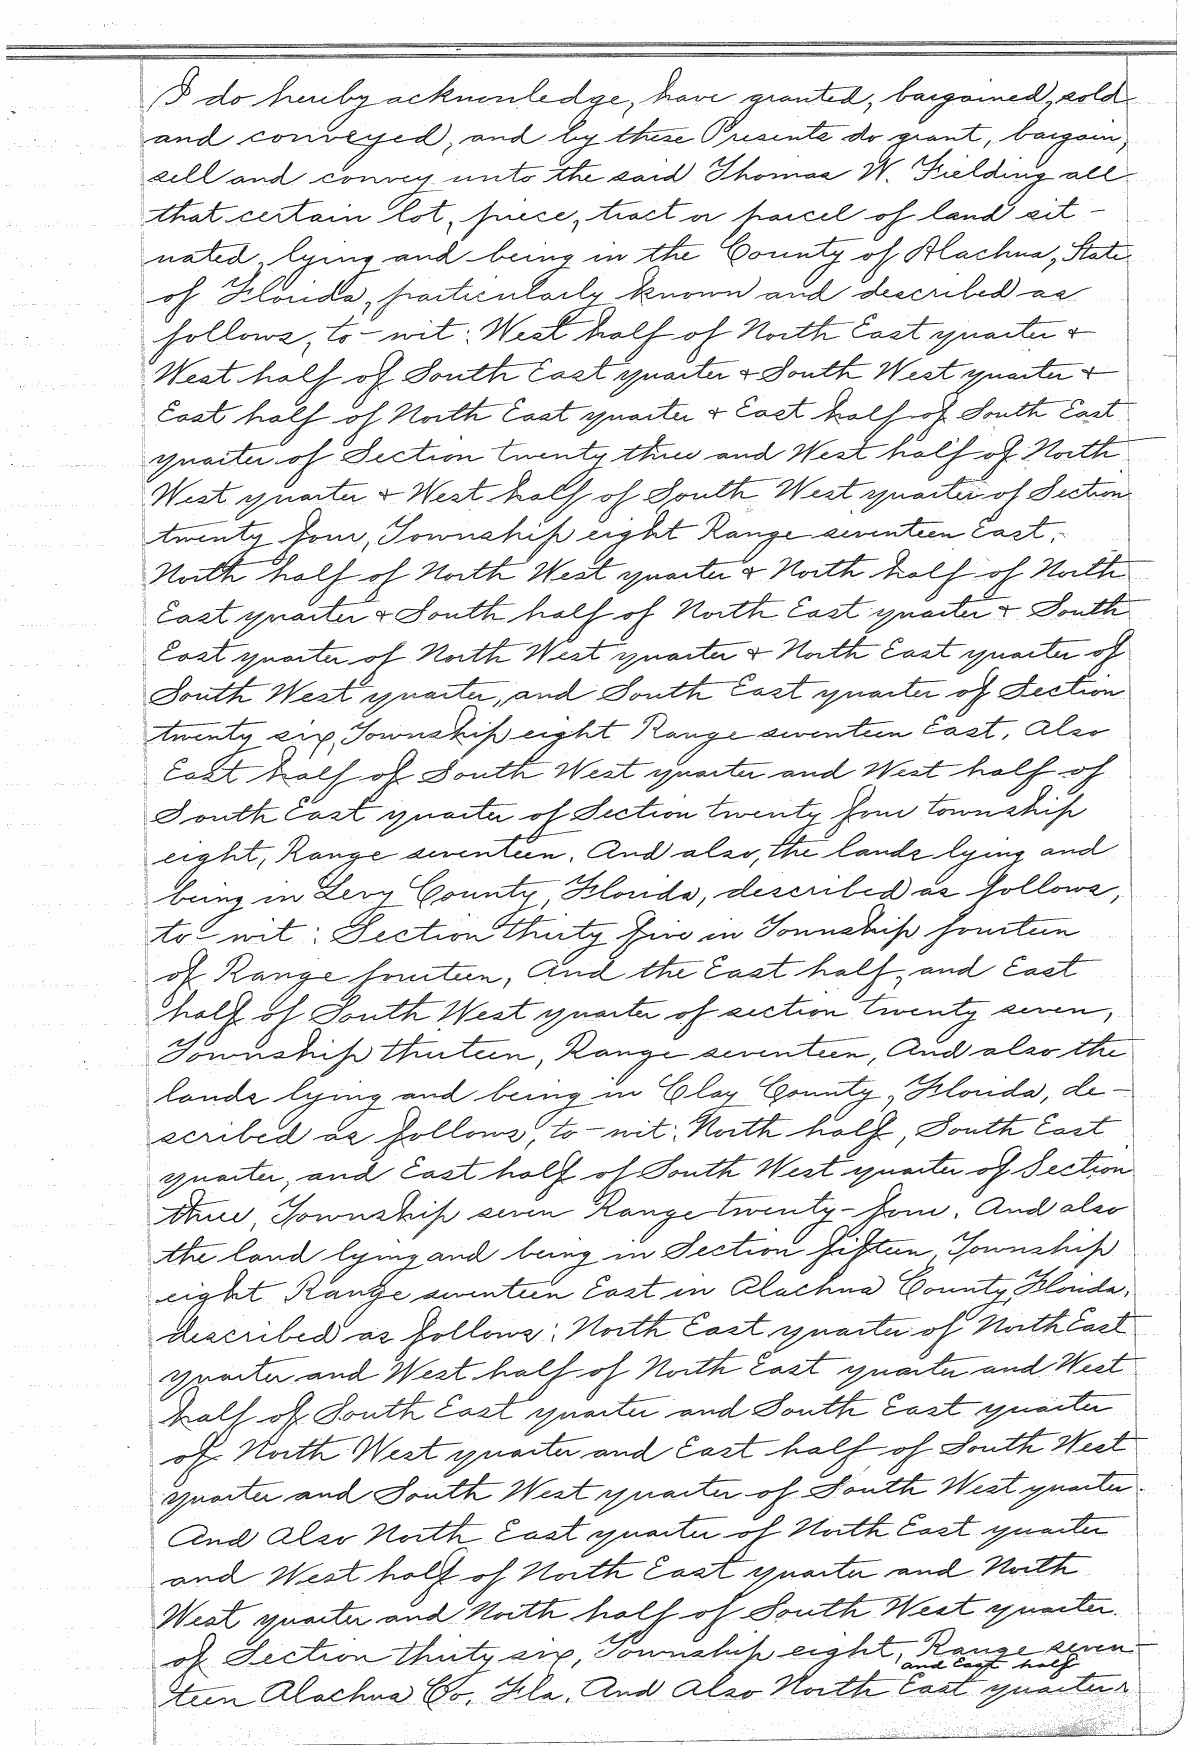 I do hereby acknowledge, have granted, bargained, sold
and conveyed, and by these Presents do grant, bargain,
sell and convey unto the said Thomas W. Fielding all
that certain lot, piece, tract or parcel of land sit-
uated, lying and being in the County of Alachua, State
of Florida, particularly known and described as
follows, to-wit: West half of North East quarter &
West half of South East quarter & South West quarter &
East half of North East quarter & East half of South East
quarter of Section twenty three and West half of North
West quarter & West half of South West quarter of Section
twenty four, Township eight Range seventeen East.
North half of North West quarter & North half of North
East quarter & South half of North East quarter & South
East quarter of North West quarter & North East quarter of
South West quarter, and South East quarter of Section
twenty six, Township eight Range seventeen East. Also
East half of South West quarter and West half of
South East quarter of Section twenty four township
eight, Range seventeen. And also, the lands lying and
being in Levy County, Florida, described as follows,
to-wit: Section thirty five in Township fourteen
of Range fourteen, And the East half, and East
half of South West quarter of section twenty seven,
Township thirteen, Range seventeen, And also the
lands lying and being in Clay County, Florida, de-
scribed as follows, to-wit: North half, South East
quarter, and East half of South West quarter of Section
three, Township seven Range twenty-four. And also
the land lying and being in Section fifteen, Township
eight Range seventeen East in Alachua County, Florida,
described as follows: North East quarter of North East
quarter and West half of North East quarter and West
half of South East quarter and South East quarter
of North West quarter and East half of South West
quarter and South West quarter of South West quarter.
And Also North East quarter of North East quarter
and West half of North East quarter and North
West quarter and North half of South West quarter.
of Section thirty six, Township eight, Range seven-
and East half
teen Alachua Co. Fla. And Also North East quarter